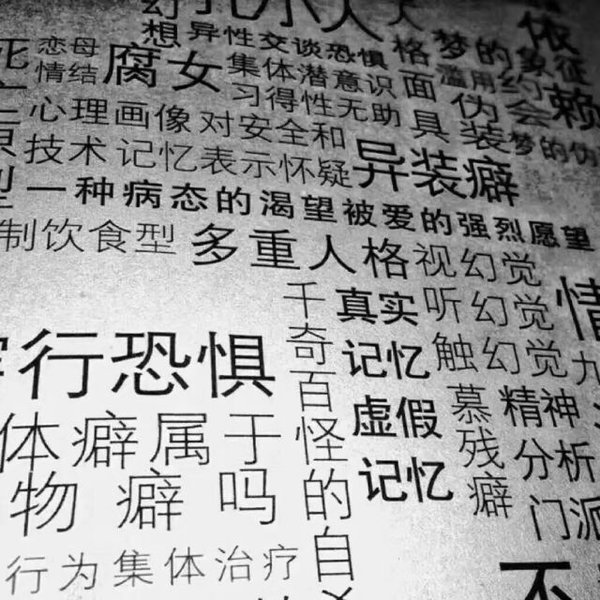 想异性交谈恐惧
格梦的象征
依赖
恋母情结
腐女
集体潜意识
习得性无助
面具
滥用
约会
伪装
梦的伪
心理画像
对安全和
技术
记忆表示怀疑
异装癖
一种病态的渴望被爱的强烈愿望
制饮食型
多重人格
视幻觉
千奇百怪的自杀
真实记忆
听幻觉
触幻觉
情
行恐惧
虚假记忆
慕残癖
精神分析门派
体癖属于
物癖吗
行为集体治疗
不